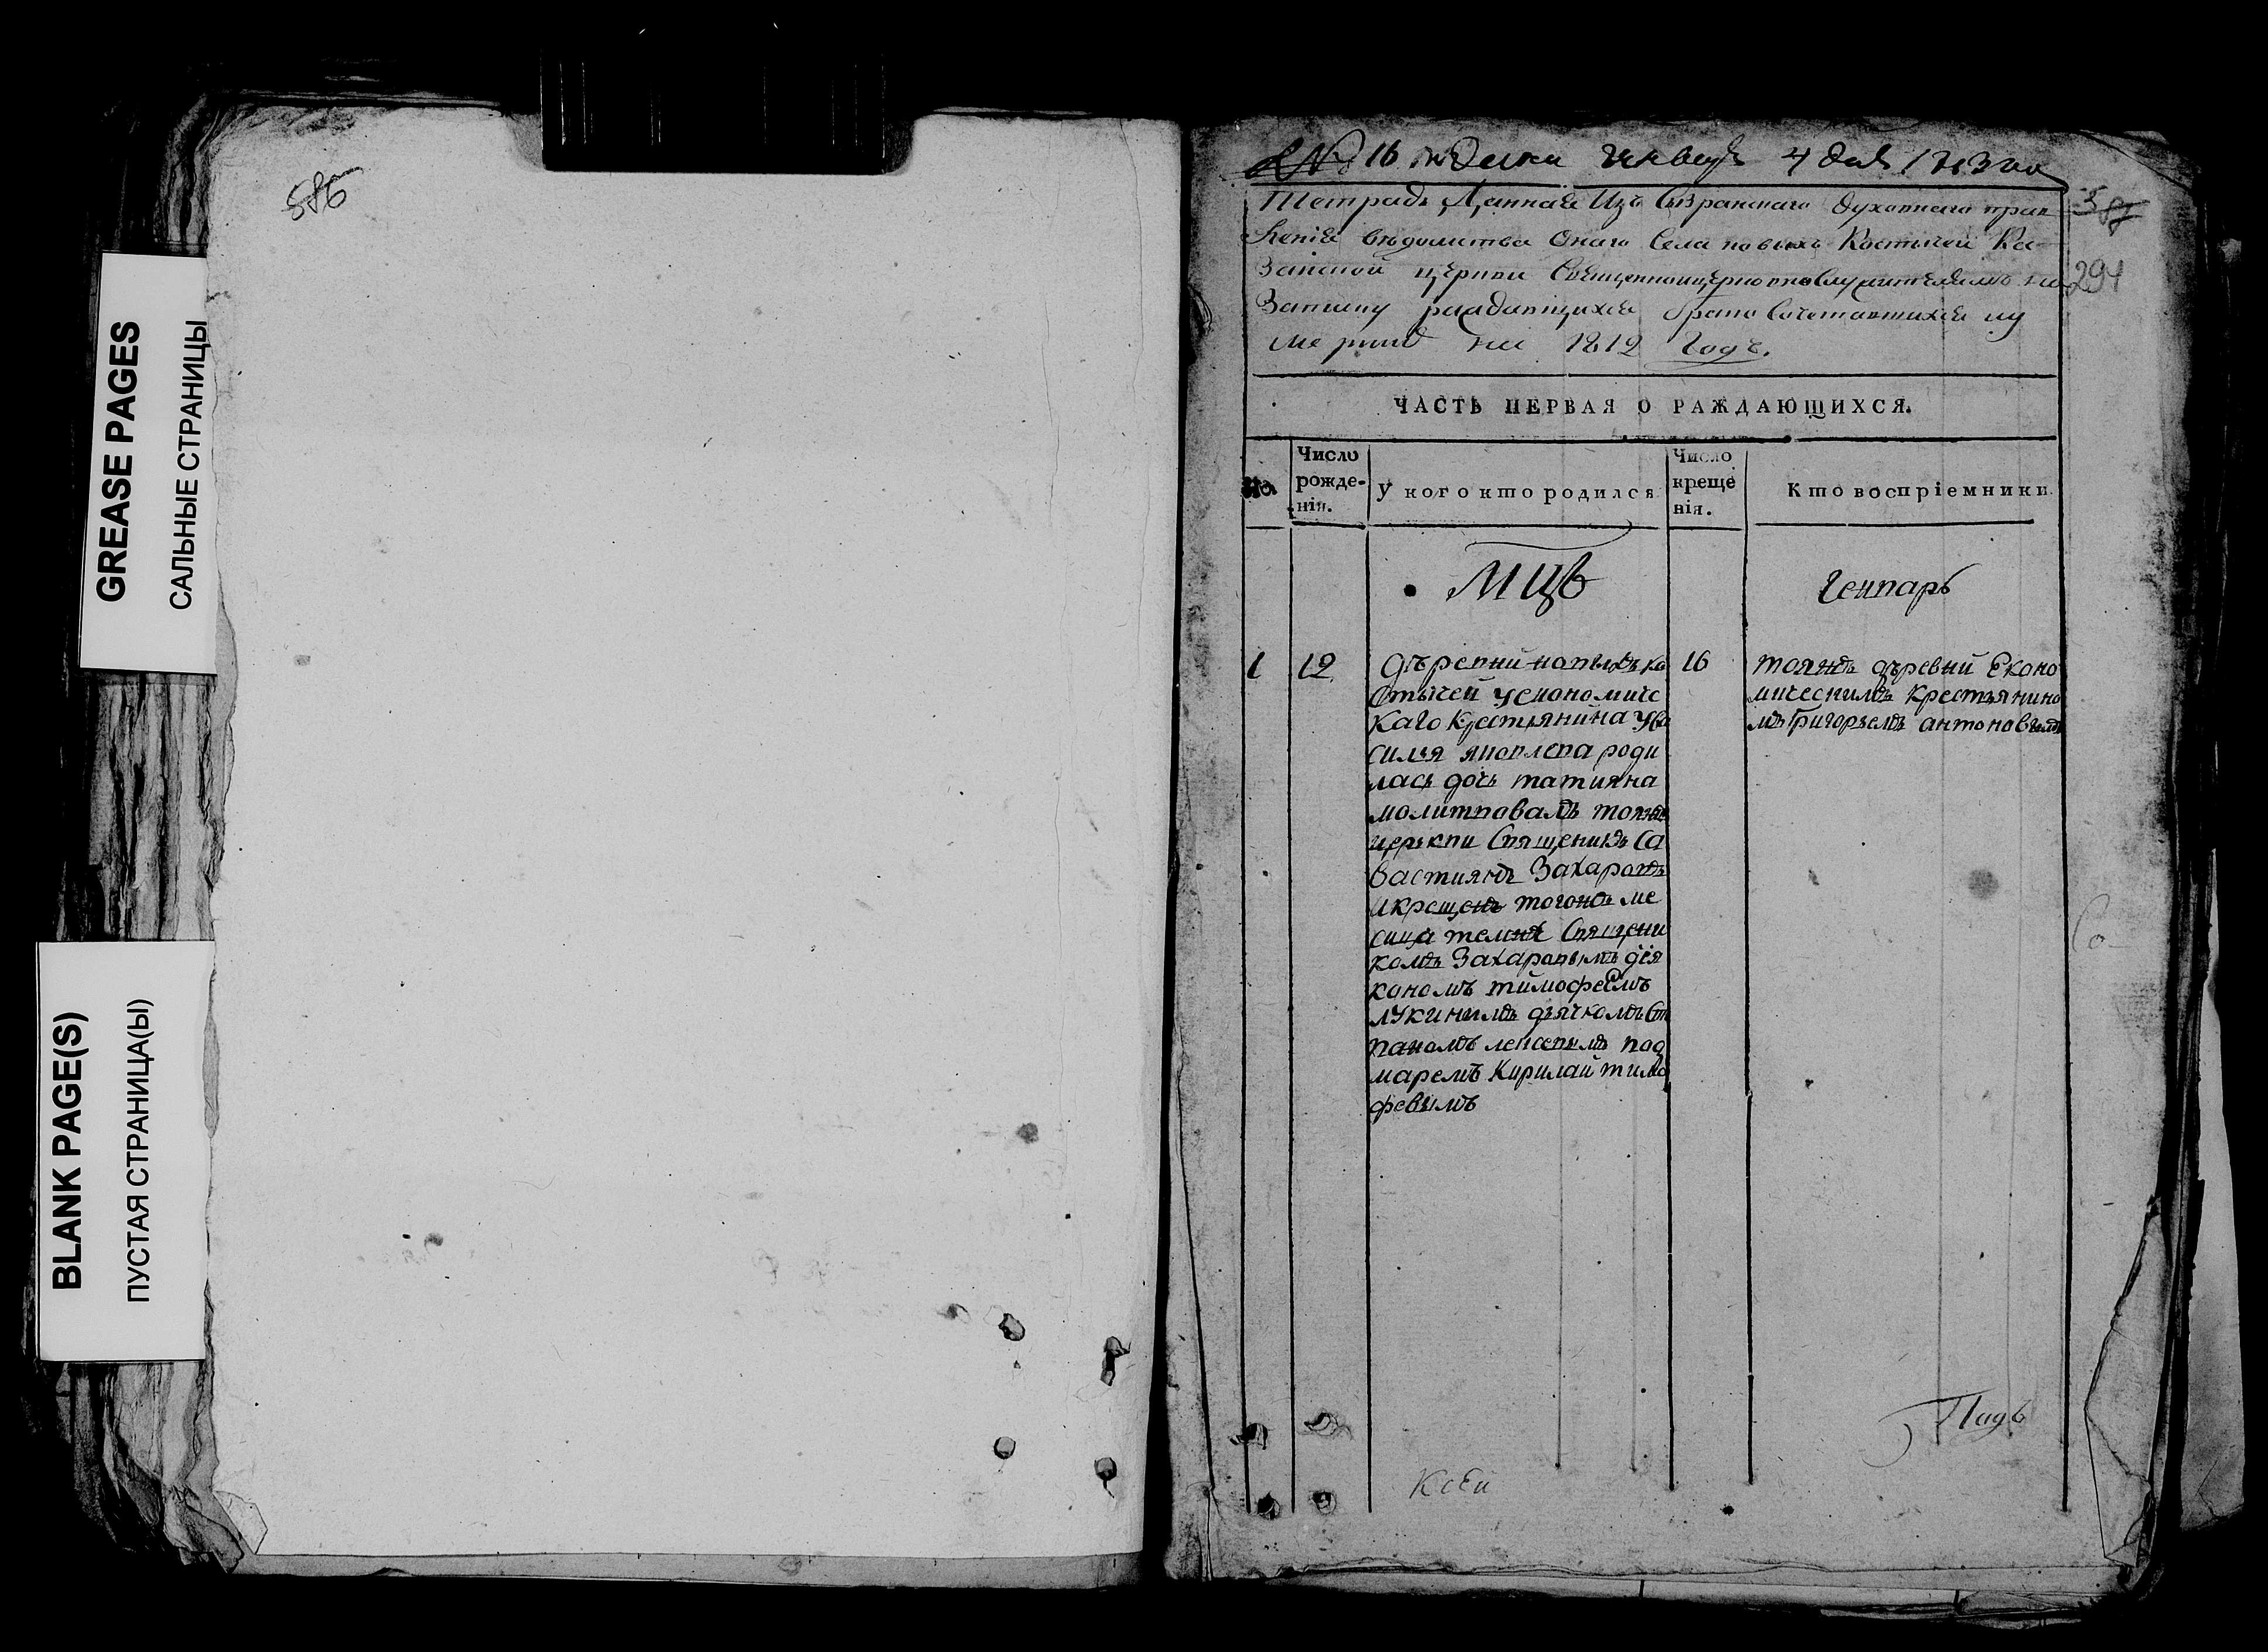 586
GREASE PAGES
САЛЬНЫЕ СТРАНИЦЫ
BLANK PAGE(S)
ПУСТАЯ СТРАНИЦА(Ы)
№ 16 4 дня
587
Тетрадь Данная Изъ Сызранскаго духовнаго прав
ления ведомства Онаго Села новыхъ Костычей Ка
занской церкви Священноицерковнослужителямъ на
294
Записку раждающихся бракомъ Сочетавшихся иу
мершихъ на 1812 Годъ.
ЧАСТЬ ПЕРВАЯ О РАЖДАЮЩИХСЯ.
No.
Число рожде-нія.
У кого кто родился
Число креще нія.
Кто воспріемники
Мцъ
Генварь
1
12
деревни новыхъ ко
стычей у економиче
каго крестьянина ува
силья яковлева роди
лась дочь татияна
молитвовалъ тояже
церькви Священикъ Са
вастиянъ Захаровъ
икрещенъ тогоже ме
сица темже Священи
комъ Захаровымъ дїя
кономъ тимофеемъ
лукинымъ дьячкомъ Сте
паномъ пог
маремъ Кирилай тимо
февымъ
16
тояжъ деревни Еконо
мическимъ крестьянино
мъ Григорьемъ антоновымъ
Ксей